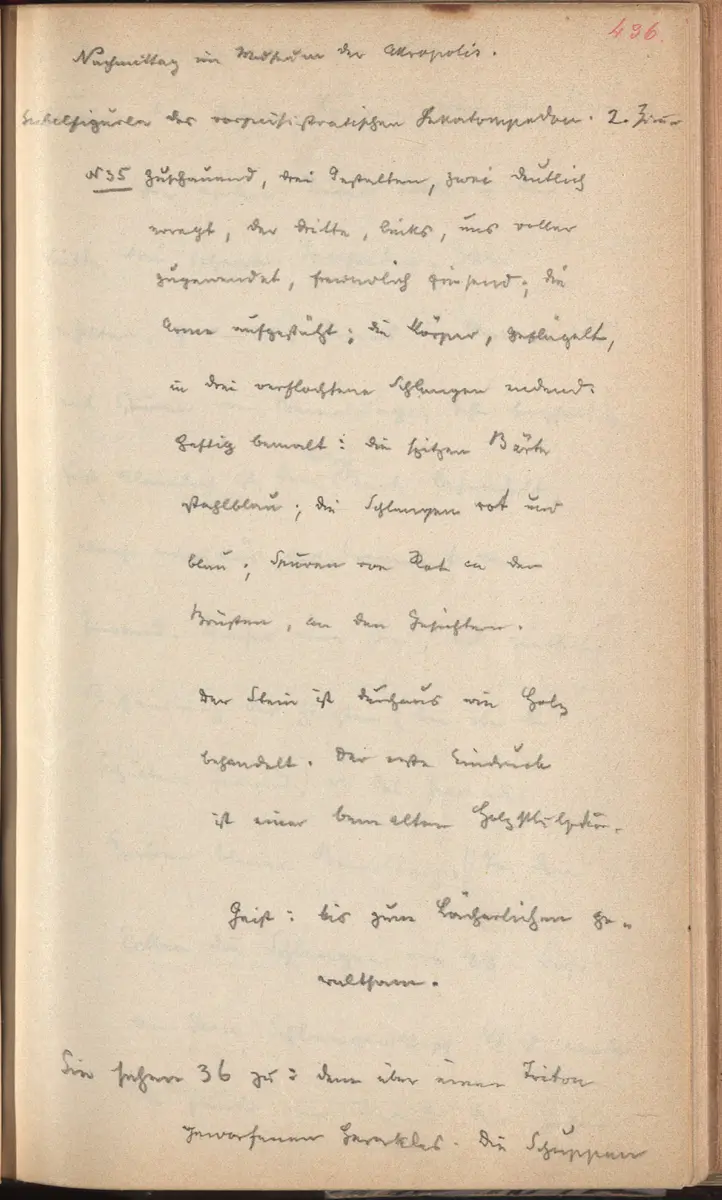 496.
Nachmittag im Museum der Akropolis.
Giebelfiguren des vorpeisistratischen Hekatompedon. 2. Zimm
№ 35 Zuschauend, drei Gestalten, zwei deutlich
erregt, der dritte, links, uns voller
zugewendet, freundlich grinsend; die
Arme aufgestützt; die Körper, geflügelt,
in drei verflochtene Schlangen endend.
Heftig bemalt: die spitzen Bärte
stahlblau; die Schlangen rot und
blau; Spuren von Rot an den
Brüsten, an den Gesichtern.
Der Stein ist durchaus wie Holz
behandelt. Der erste Eindruck
ist einer bemalten Holzskulptur.
Geist: bis zum Lächerlichen ge-
waltsam.
Sie sehen 36 zu: dem über einen Triton
geworfenen Herakles. Die Schuppen